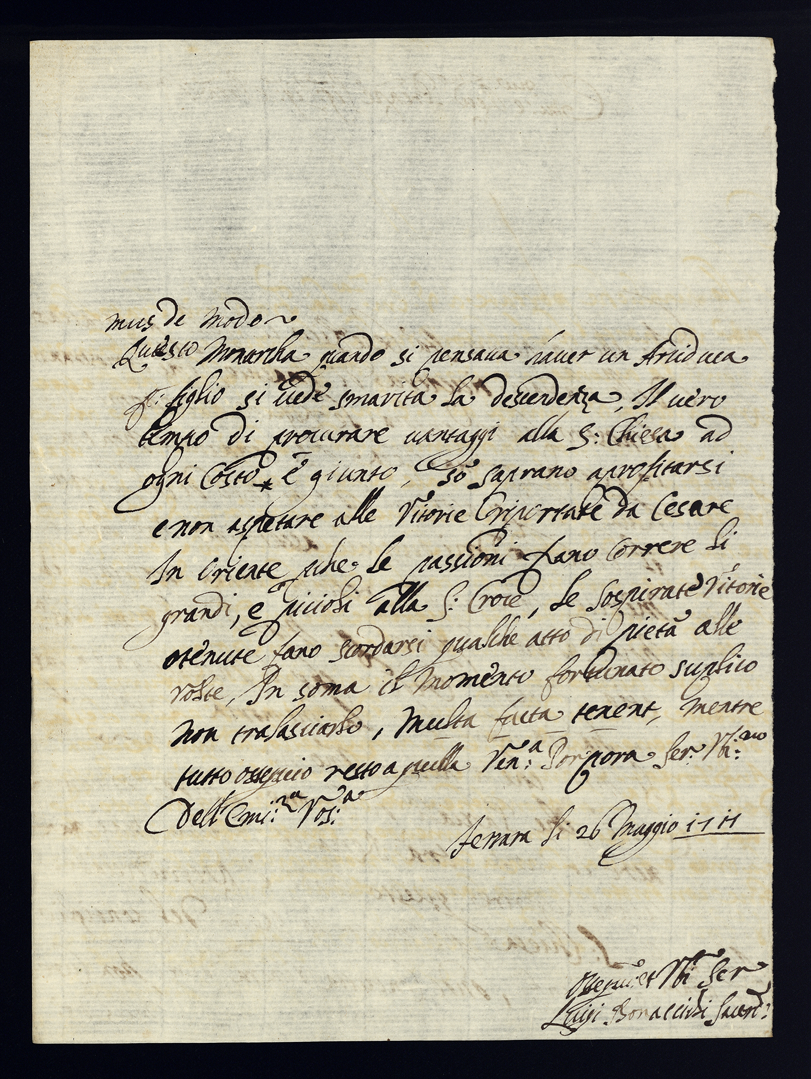 mus de modo
Questo Monarcha quando si pensava haver un Arciduca
p: figlio si vede smarita la descendenza, Il vero
tempo di procurare vantaggi alla S: Chiesa ad
ogni Costo è giunto, so saprano aprofitarsi
e non aspetare alle Vitorie riportate da Cesare
In Oriente, che le passioni fano Correre Li
grandi, e picioli alla S: Croce, Le Sospirate Vitorie
otenute fano scordarsi qualche atto di pietà alle
volte, In soma il Momento fortunato suplico
non tralasciarlo, Multa facta tenent, mentre
tutto ossequio resto a quella Ven:a Porpora Ser: Vb:mo
Dell' Emi:za Vos:a
Ferrara Li 26 Maggio
Ossequiet Vb: Ser
Luigi Bonacioli Sacerd: